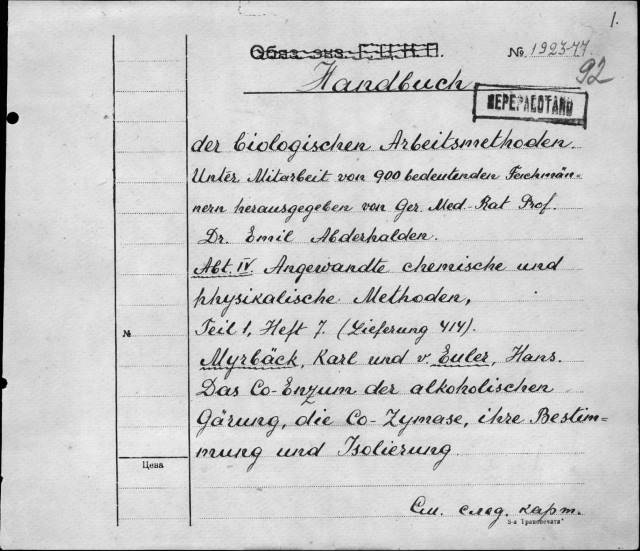 1.
Обяз. экз. Г.Ц.К.П.
№ 1923-77.
92
Handbuch
ПЕРЕРАБОТАНО
der biologischen Arbeitsmethoden.
Unter Mitarbeit von 900 bedeutenden Feichmän=
nern herausgegeben von Ger. Med. Rat Prof.
Dr. Emil Abderhalden.
Abt. IV. Angewandte chemische und
physikalische Methoden,
Teil 1, Heft 7. (Lieferung 414).
№
Myrbäck, Karl und v. Euler, Hans.
Das Co-Enzum der alkoholischen
Gärung, die Co-Zymase, ihre Bestim=
mung und Isolierung
Цена
См. след. карт.
3-я Транспечати